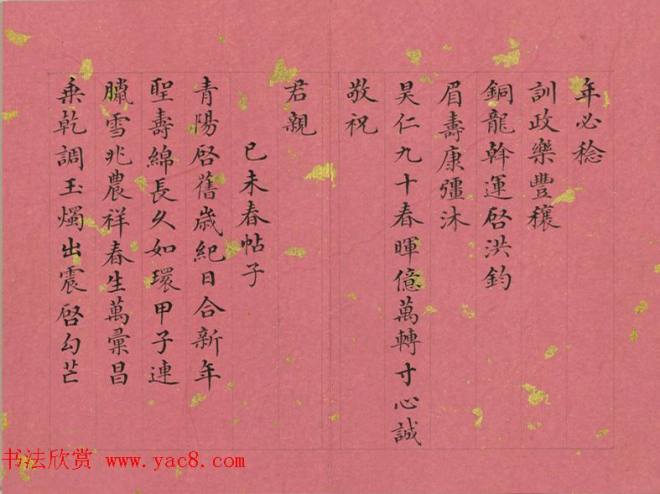 年必稔
訓政樂豐穰
銅龍斡運啓洪鈞
眉壽康彊沐
昊仁九十春暉億萬轉寸心誠
敬祝
君親
己未春帖子
青陽啓舊歲紀日合新年
聖壽綿長久如環甲子連
臘雪兆農祥春生萬彙昌
乘乾調玉燭出震啓勾芒
书法欣赏 www.yac8.com